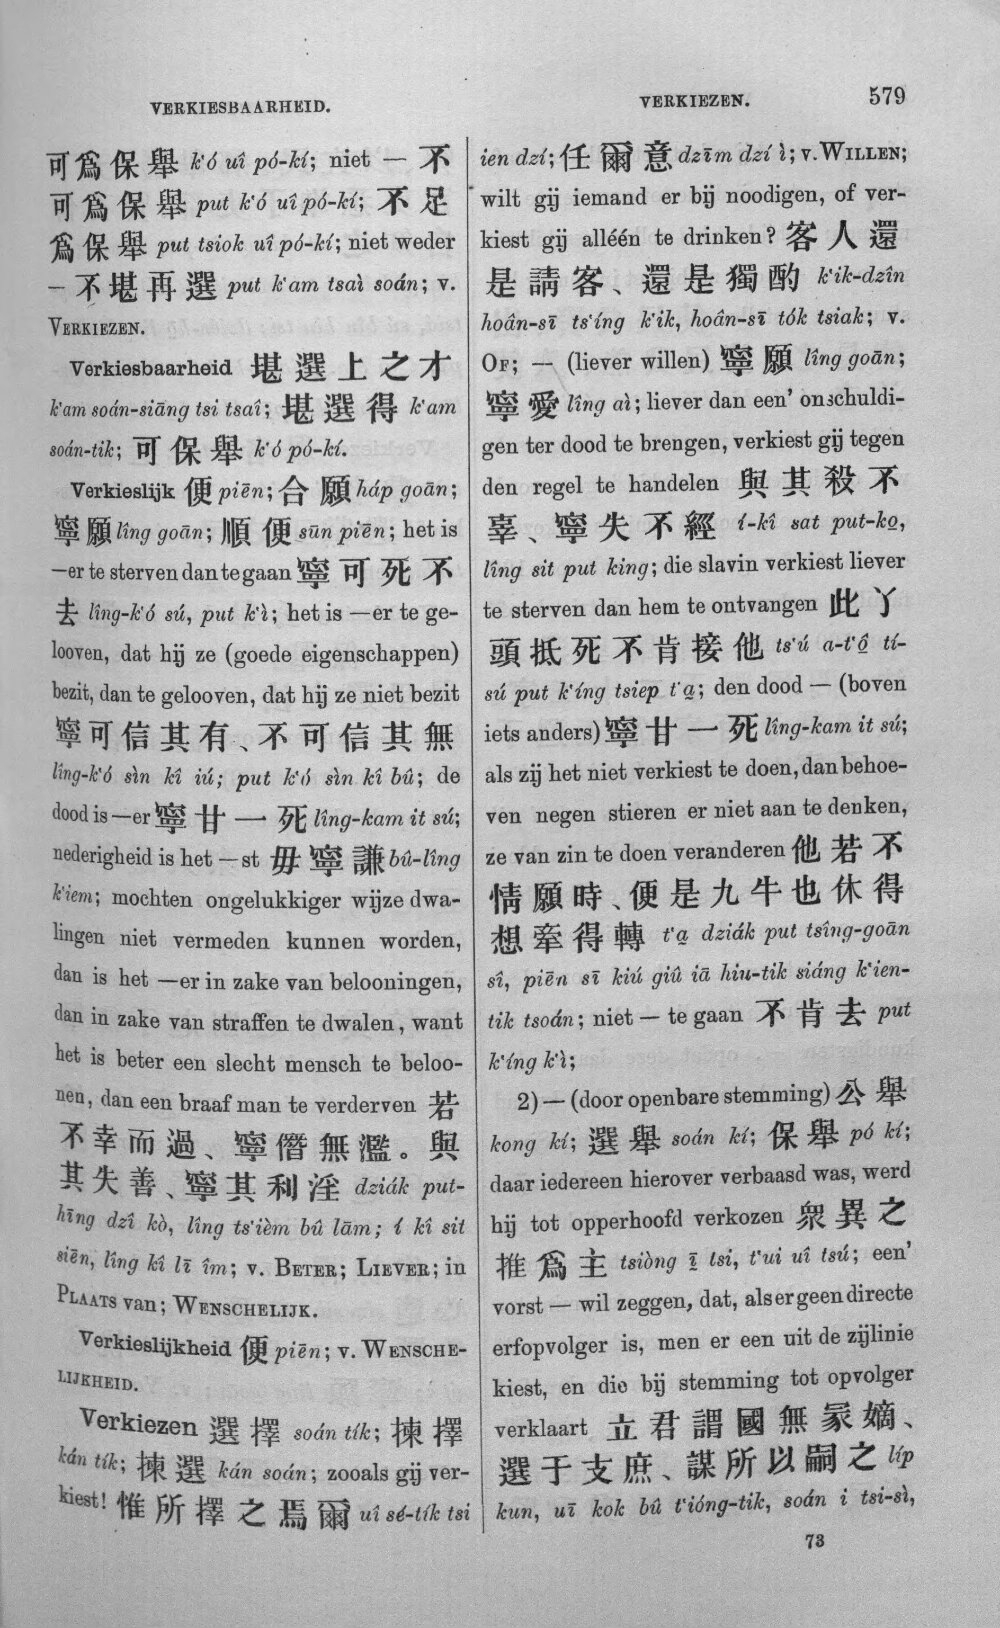 VERKIESBAARHEID.
VERKIEZEN.
579
可爲保舉 k‘ó uî pó-kí; niet — 不
可爲保舉 put k‘ó uî pó-kí; 不足
爲保舉 put tsiok uî pó-kí; niet weder
— 不堪再選 put k‘am tsaì soán; v.
VERKIEZEN.
Verkiesbaarheid 堪選上之才
k‘am soán-siāng tsi tsaî; 堪選得 k‘am
soán-tik; 可保舉 k‘ó pó-kí.
Verkieslijk 便 piēn; 合願 háp goān;
寧願 lîng goān; 順便 sūn piēn; het is
—er te sterven dan te gaan 寧可死不
去 lîng-k‘ó sú, put k‘ì; het is —er te ge-
looven, dat hij ze (goede eigenschappen)
bezit, dan te gelooven, dat hij ze niet bezit
寧可信其有、不可信其無
lîng-k‘ó sìn kî iú; put k‘ó sìn kî bû; de
dood is —er 寧甘一死 lîng-kam it sú;
nederigheid is het —st 毋寧謙 bû-lîng
k‘iem; mochten ongelukkiger wijze dwa-
lingen niet vermeden kunnen worden,
dan is het —er in zake van belooningen,
dan in zake van straffen te dwalen, want
het is beter een slecht mensch te beloo-
nen, dan een braaf man te verderven 若
不幸而過、寧僭無濫。與
其失善、寧其利淫 dziák put-
hīng dzî kò, lîng ts‘ièm bû lām; í kî sit
siēn, lîng kî lī îm; v. BETER; LIEVER; in
PLAATS van; WENSCHELIJK.
Verkieslijkheid 便 piēn; v. WENSCHE-
LIJKHEID.
Verkiezen 選擇 soán tík; 揀擇
kán tík; 揀選 kán soán; zooals gij ver-
kiest! 惟所擇之焉爾 uî sé-tík tsi
ien dzí; 任爾意 dzīm dzí ì; v. WILLEN;
wilt gij iemand er bij noodigen, of ver-
kiest gij alléén te drinken? 客人還
是請客、還是獨酌 k‘ik-dzîn
hoân-sī ts‘íng k‘ik, hoân-sī tók tsiak; v.
OF; — (liever willen) 寧願 lîng goān;
寧愛 lîng aì; liever dan een’ onschuldi-
gen ter dood te brengen, verkiest gij tegen
den regel te handelen 與其殺不
辜、寧失不經 í-kî sat put-ko,
lîng sit put king; die slavin verkiest liever
te sterven dan hem te ontvangen 此丫
頭抵死不肯接他 ts‘ú a-t‘ô tí-
sú put k‘íng tsiep t‘a; den dood — (boven
iets anders) 寧甘一死 lîng-kam it sú;
als zij het niet verkiest te doen, dan behoe-
ven negen stieren er niet aan te denken,
ze van zin te doen veranderen 他若不
情願時、便是九牛也休得
想牽得轉 t‘a dziák put tsîng-goān
sî, piēn sī kiú giû iā hiu-tik siáng k‘ien-
tik tsoán; niet — te gaan 不肯去 put
k‘íng k‘ì;
2) — (door openbare stemming) 公舉
kong kí; 選舉 soán kí; 保舉 pó kí;
daar iedereen hierover verbaasd was, werd
hij tot opperhoofd verkozen 衆異之
推爲主 tsiòng ī tsi, t‘ui uî tsú; een’
vorst — wil zeggen, dat, als er geen directe
erfopvolger is, men er een uit de zijlinie
kiest, en die bij stemming tot opvolger
verklaart 立君謂國無冢嫡、
選于支庶、謀所以嗣之 líp
kun, uī kok bû t‘ióng-tik, soán i tsi-sì,
73